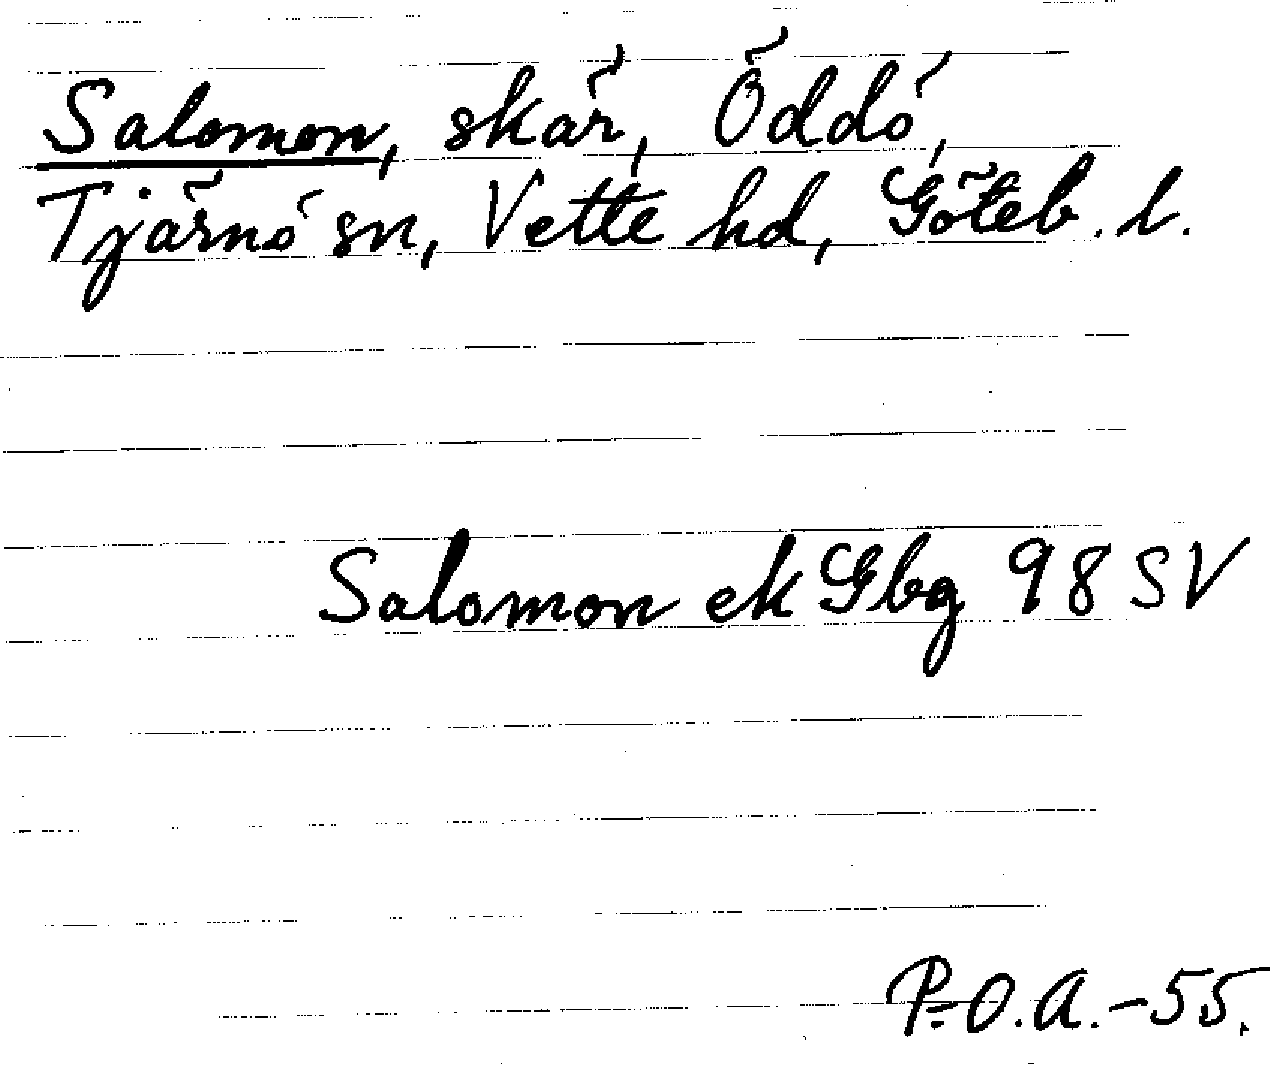 Salomon, skär, Öddö,
Tjärnö sn, Vette hd, Göteb. l.
Salomon ek Gbg 98 SV
P.O.A.-55.